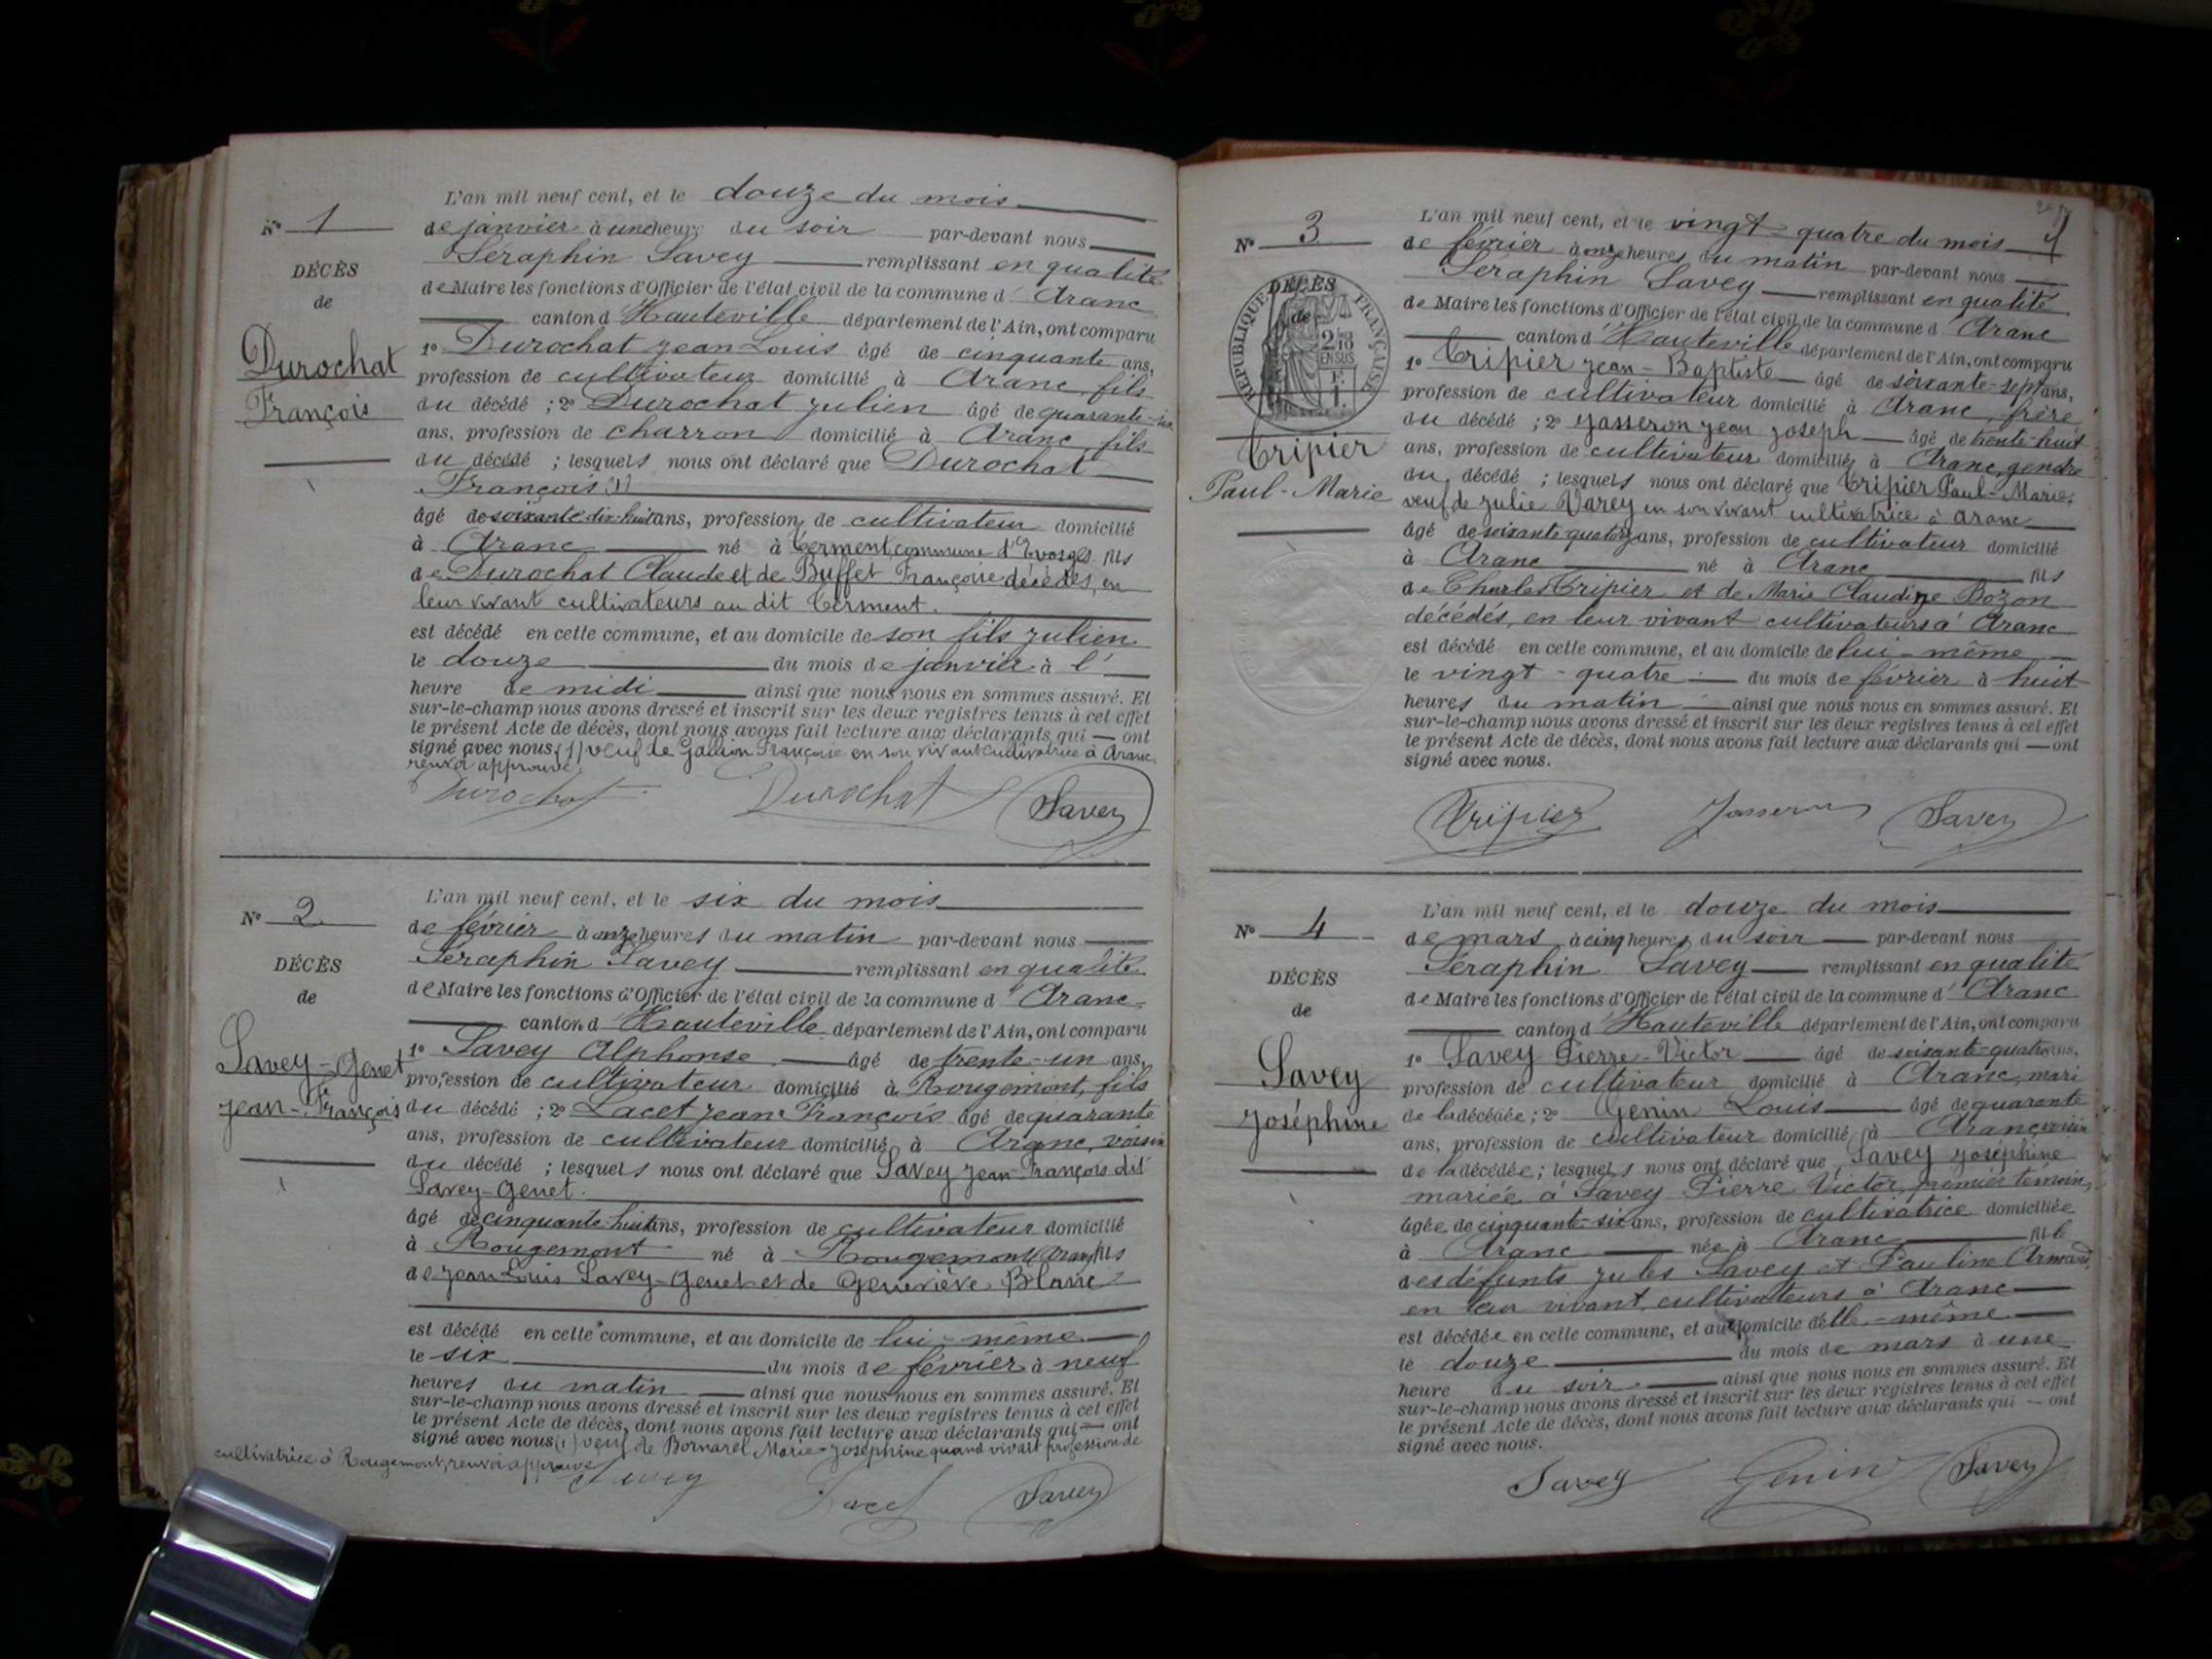 L'an mil neuf cent, et le douze du mois
N° 1
de janvier à une heure du soir par-devant nous
Séraphin Savey remplissant en qualité
DÉCÈS
de Maire les fonctions d'Officier de l'état civil de la commune d'Aranc
de
canton d'Hauteville département de l'Ain, ont comparu
Durochat
François
1° Durochat Jean Louis âgé de cinquante ans,
profession de cultivateur domicilié à Aranc, fils
du décédé ; 2° Durochat Julien âgé de quarante-six
ans, profession de charron domicilié à Aranc, fils
du décédé ; lesquels nous ont déclaré que Durochat
François (1)
âgé de soixante dix-huit ans, profession de cultivateur domicilié
à Aranc né à Terment, commune d'Evosges fils
de Durochat Claude et de Buffet Françoise décédés, en
leur vivant cultivateurs au dit Terment.
est décédé en cette commune, et au domicile de son fils Julien
le douze du mois de janvier à l'
heure de midi ainsi que nous nous en sommes assuré. Et
sur-le-champ nous avons dressé et inscrit sur les deux registres tenus à cet effet
le présent Acte de décès, dont nous avons fait lecture aux déclarants qui ont
signé avec nous. (1) veuf de Françoise en son vivant cultivatrice à Aranc,
renvoi approuvé.
Durochat Durochat Savey
L'an mil neuf cent, et le six du mois
N° 2
de février à onze heures du matin par-devant nous
Séraphin Savey remplissant en qualité
DÉCÈS
de Maire les fonctions d'Officier de l'état civil de la commune d'Aranc
de
canton d'Hauteville département de l'Ain, ont comparu
Savey-Genet
Jean-François
1° Savey Alphonse âgé de trente-un ans,
profession de cultivateur domicilié à Rougemont, fils
du décédé ; 2° Lacet Jean François âgé de quarante
ans, profession de cultivateur domicilié à Aranc, voisin
du décédé ; lesquels nous ont déclaré que Savey Jean-François dit
Savey-Genet.
âgé de cinquante-huit ans, profession de cultivateur domicilié
à Rougemont né à Rougemont (Aranc) fils
de Jean Louis Savey-Genet et de Geneviève Blanc
est décédé en cette commune, et au domicile de lui-même
le six du mois de février à neuf
heures du matin ainsi que nous nous en sommes assuré. Et
sur-le-champ nous avons dressé et inscrit sur les deux registres tenus à cet effet
le présent Acte de décès, dont nous avons fait lecture aux déclarants qui ont
signé avec nous (1) veuf de Bornarel Marie-Joséphine quand vivait profession de
cultivatrice à Rougemont, renvoi approuvé
Savey Lacet Savey
L'an mil neuf cent, et le vingt-quatre du mois
N° 3
de février à onze heures du matin par-devant nous
Séraphin Savey remplissant en qualité
DÉCÈS
de
RÉPUBLIQUE FRANÇAISE
2/10
EN SUS
de Maire les fonctions d'Officier de l'état civil de la commune d'Aranc
canton d'Hauteville département de l'Ain, ont comparu
Tripier
Paul-Marie
1° Tripier Jean-Baptiste âgé de soixante-sept ans,
profession de cultivateur domicilié à Aranc, frère
du décédé ; 2° Jasseron Jean Joseph âgé de trente-huit
ans, profession de cultivateur domiciliés à Aranc, gendre
du décédé ; lesquels nous ont déclaré que Tripier Paul-Marie,
veuf de Julie Varey en son vivant cultivatrice à Aranc
âgé de soixante quatorze ans, profession de cultivateur domicilié
à Aranc né à Aranc fils
de Charles Tripier et de Marie Claudine Bozon
décédés, en leur vivant cultivateurs à Aranc
est décédé en cette commune, et au domicile de lui-même
le vingt-quatre du mois de février à huit
heures du matin ainsi que nous nous en sommes assuré. Et
sur-le-champ nous avons dressé et inscrit sur les deux registres tenus à cet effet
le présent Acte de décès, dont nous avons fait lecture aux déclarants qui ont
signé avec nous.
Tripier Jasseron Savey
L'an mil neuf cent, et le douze du mois
N° 4
de mars à cinq heures du soir par-devant nous
Séraphin Savey remplissant en qualité
DÉCÈS
de Maire les fonctions d'Officier de l'état civil de la commune d'Aranc
de
canton d'Hauteville département de l'Ain, ont comparu
Savey
Joséphine
1° Savey Pierre-Victor âgé de soixante-quatre ans,
profession de cultivateur domicilié à Aranc, mari
de la décédée ; 2° Genin Louis âgé de quarante
ans, profession de cultivateur domicilié à Aranc, voisin
de la décédée ; lesquels nous ont déclaré que Savey Joséphine
mariée à Savey Pierre Victor, premier témoin,
âgée de cinquante-six ans, profession de cultivatrice domiciliée
à Aranc née à Aranc fille
des défunts Jules Savey et Pauline Armand,
en leur vivant cultivateurs à Aranc
est décédée en cette commune, et au domicile d'elle-même
le douze du mois de mars à une
heure du soir ainsi que nous nous en sommes assuré. Et
sur-le-champ nous avons dressé et inscrit sur les deux registres tenus à cet effet
le présent Acte de décès, dont nous avons fait lecture aux déclarants qui ont
signé avec nous.
Savey Genin Savey